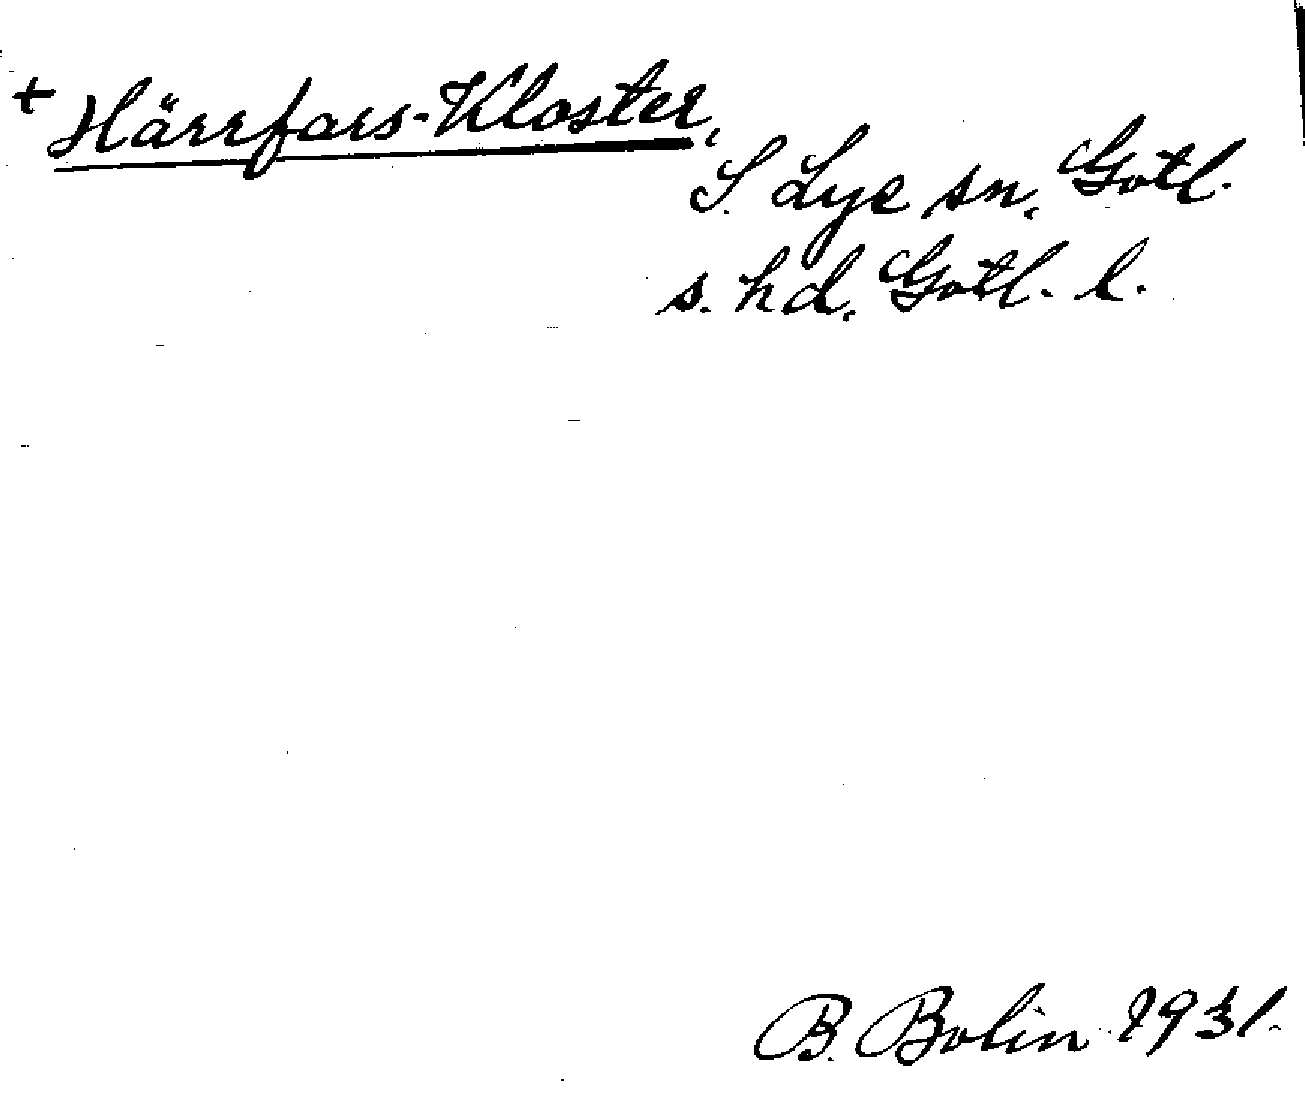 + Härrfars-Kloster,
S. Lye sn, Gotl.
s. hd, Gotl. l.
B. Bolin 1931.